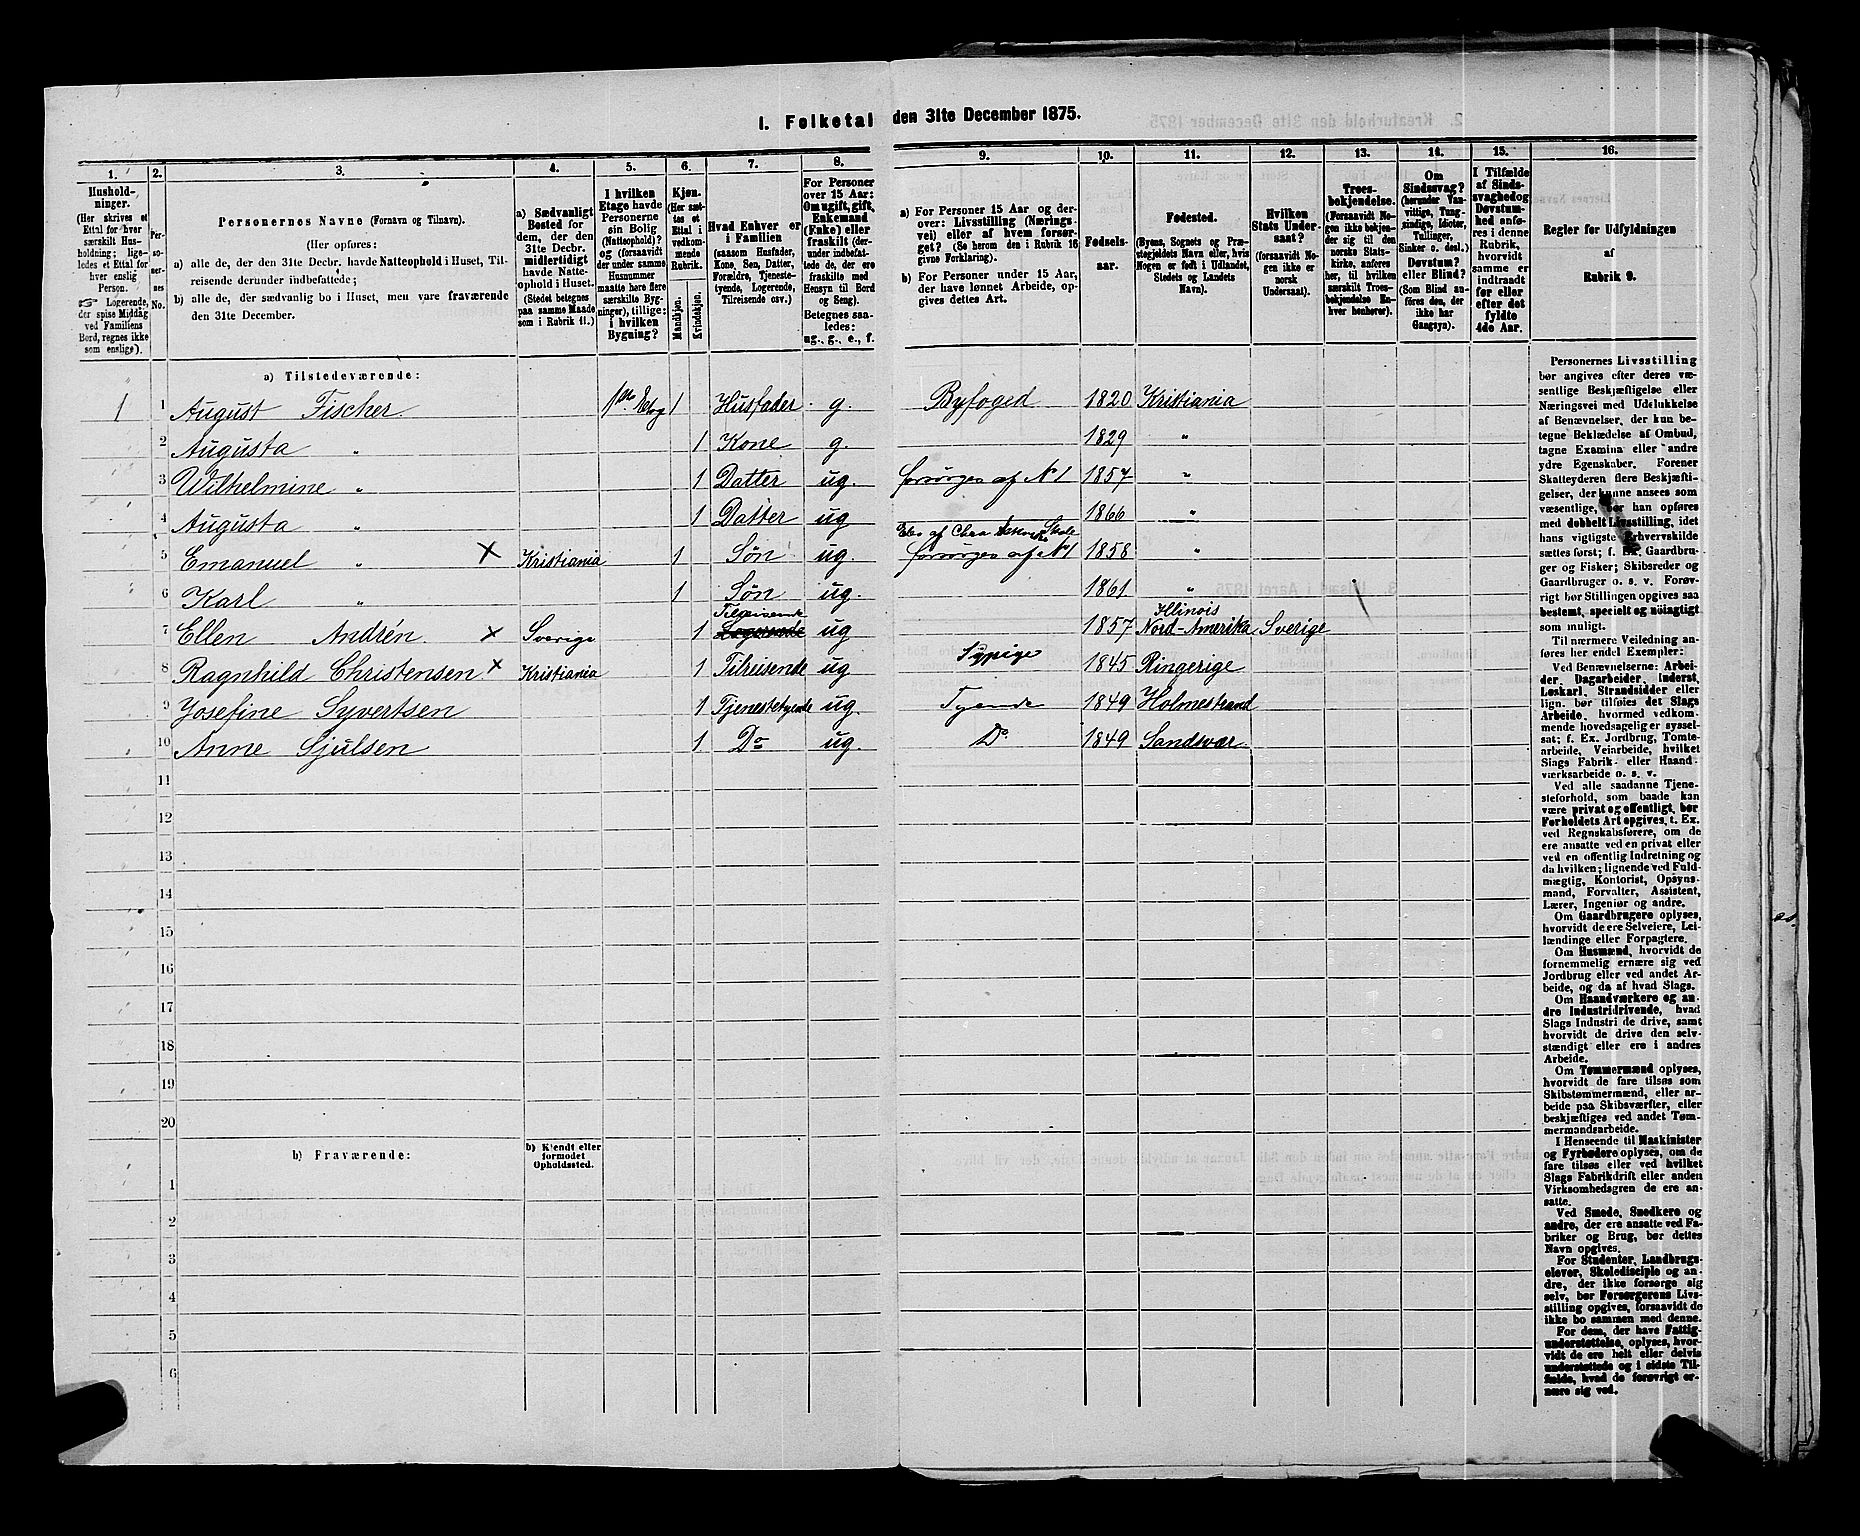 1. Folketal den 31te December 1875.
1. 2. 3. 4. 5. 6. 7. 8. 9. 10. 11. 12. 13. 14. 15. 16.
Hushold-
ninger.
(Her skrives et
Ettal for hver
særskilt Hus-
holdning; lige-
ledes et Ettal for
hver enslig
Person.
☞ Logerende,
der spise Middag
ved Familiens
Bord, regnes ikke
som enslige).
Per-
so-
ner-
nes
No.
Personernes Navne (Fornavn og Tilnavn).
(Her opføres:
a) alle de, der den 31te Decbr. havde Natteophold i Huset, Til-
reisende derunder indbefattede;
b) alle de, der sædvanlig bo i Huset, men vare fraværende
den 31te December.
a) Sædvanligt
Bosted for
dem, der den
31te Decbr.
midlertidigt
havde Natte-
ophold i Huset.
(Stedet betegnes
paa samme Maade
som i Rubrik 11.)
I hvilken
Etage havde
Personerne
sin Bolig
(Natteophold)?
og (forsaavidt
der under samme
Husnummer
maatte høre flere
særskilte Byg-
ninger), tillige:
i hvilken
Bygning?
Kjøn.
(Her sæt-
tes et
Ettal i
vedkom-
mende
Rubrik.
Mandkjøn.
Kvindekjøn.
Hvad Enhver er
i Familien
(saasom Husfader,
Kone, Søn, Datter,
Forældre, Tjeneste-
tyende, Logerende,
Tilreisende osv.)
For Personer
over 15 Aar:
Om ugift, gift,
Enkemand
(Enke) eller
fraskilt (der-
under indbefat-
tede de, der ere
fraskilte med
Hensyn til Bord
og Seng).
Betegnes saa-
ledes:
ug., g., e., f.
a) For Personer 15 Aar og der-
over: Livsstilling (Nærings-
vei) eller af hvem forsør-
get? (Se herom den i Rubrik 16
givne Forklaring).
b) For Personer under 15 Aar,
der have lønnet Arbeide, op-
gives dettes Art.
Fødsels-
aar.
Fødested.
(Byens, Sognets og Præ-
stegjeldets Navn eller, hvis
Nogen er født i Udlandet,
Stedets og Landets
Navn).
Hvilken
Stats Under-
saat?
(forsaavidt No-
gen ikke er
norsk
Undersaat).
Troes-
bekjendelse.
(Forsaavidt No-
gen ikke bekjen-
der sig til den
norske Stats-
kirke, anføres
her, til hvilken
særskilt Troes-
bekjendelse En-
hver henhører).
Om
Sindssvag?
(herunder Van-
vittige, Tung-
sindige, Idioter,
Tullinger,
Sinker o. desl.)
Døvstum?
eller Blind?
(Som Blind an-
føres den, der
ikke har
Gangsyn).
I Tilfælde
af Sinds-
svaghed og
Døvstum-
hed anfø-
res i denne
Rubrik,
hvorvidt
samme er
indtraadt
før eller
efter det
fyldte
4de Aar.
Regler for Udfyldningen
af
Rubrik 9.
a) Tilstedeværende:
1 1 August Fischer 1ste Etag 1 Husfader g. Byfoged 1820 Kristiania
2 Augusta " 1 Kone g. 1829 "
3 Wilhelmine " 1 Datter ug. forsørges af No 1 1857 "
4 Augusta " 1 Datter ug 1866 "
Elev af Chra Skole
5 Emanuel " × Kristiania 1 Søn ug. forsørges af No 1 1858 "
6 Karl " 1 Søn ug. 1861 "
Tilreisende Illinois
7 Ellen Andrén × Sverige 1 Logerende ug 1857 Nord-Amerika Sverige
8 Ragnhild Christensen × Kristiania 1 Tilreisende ug Sypige 1845 Ringerige
9 Josefine Syvertsen 1 Tjenestetyende ug. Tyende 1849 Holmestrand
10 Anne Gjulsen 1 Do ug. Do. 1849 Sandsvær
11
12
13
14
15
16
17
18
19
20
b) Fraværende: b) Kjendt eller
formodet
Opholdssted.
1
2
3
4
5
6
Personernes Livsstilling
bør angives efter deres væ-
sentlige Beskjæftigelse eller
Næringsvei med Udelukkelse
af Benævnelser, der kun be-
tegne Beklædelse af Ombud,
tagne Examina eller andre
ydre Egenskaber. Forener
Skatteyderen flere Beskjæfti-
gelser, der kunne ansees som
væsentlige, bør han opføres
med dobbelt Livsstilling, idet
hans vigtigste Erhvervskilde
sættes først; f. Ex. Gaardbru-
ger og Fisker; Skibsreder og
Gaardbruger o. s. v. Forøv-
rigt bør Stillingen opgives saa
bestemt, specielt og nöiagtigt
som muligt.
Til nærmere Veiledning an-
føres her endel Exempler:
Ved Benævnelserne: Arbei-
der, Dagarbeider, Inderst,
Løskarl, Strandsidder eller
lign. bør tilføies det Slags
Arbeide, hvormed vedkom-
mende hovedsagelig er syssel-
sat; f. Ex. Jordbrug, Tomte-
arbeide, Veiarbeide, hvilket
Slags Fabrik- eller Haand-
værksarbeide o. s. v.
Ved alle saadanne Tjene-
steforhold, som baade kan
være privat og offentligt, bør
Forholdets Art opgives, t. Ex.
ved Regnskabsførere, om de
ere ansatte ved en privat eller
ved en offentlig Indretning og
da hvilken; lignende ved Fuld-
mægtig, Kontorist, Opsyns-
mand, Forvalter, Assistent,
Lærer, Ingeniør og andre.
Om Gaardbrugere oplyses,
hvorvidt de ere Selveiere, Lei-
lændinge eller Forpagtere.
Om Husmænd, hvorvidt de
fornemmelig ernære sig ved
Jordbrug eller ved andet Ar-
beide, og da af hvad Slags.
Om Haandværkere og an-
dre Industridrivende, hvad
Slags Industri de drive, samt
hvorvidt de drive den selv-
stændigt eller ere i andres
Arbeide.
Om Tømmermænd oplyses,
hvorvidt de fare tilsøs som
Skibstømmermænd, eller ar-
beide paa Skibsværfter, eller
beskjæftiges ved andet Tøm-
mermandsarbeide.
I Henseende til Maskinister
og Fyrbødere oplyses, om de
fare tilsøs eller ved hvilket
Slags Fabrikdrift eller anden
Virksomhedsgren de ere an-
satte.
Ved Smede, Snedkere og
andre, der ere ansatte ved Fa-
briker og Brug, bør dettes
Navn opgives.
For Studenter, Landbrugs-
elever, Skoledisciple og an-
dre, der ikke forsørge sig
selv, bør Forsørgerens Livs-
stilling opgives, forsaavidt de
ikke bo sammen med denne.
For dem, der have Fattig-
understøttelse, oplyses, hvor-
vidt de ere helt eller delvis
understøttede og i sidste Til-
fælde, hvad de forøvrigt er-
nære sig ved.